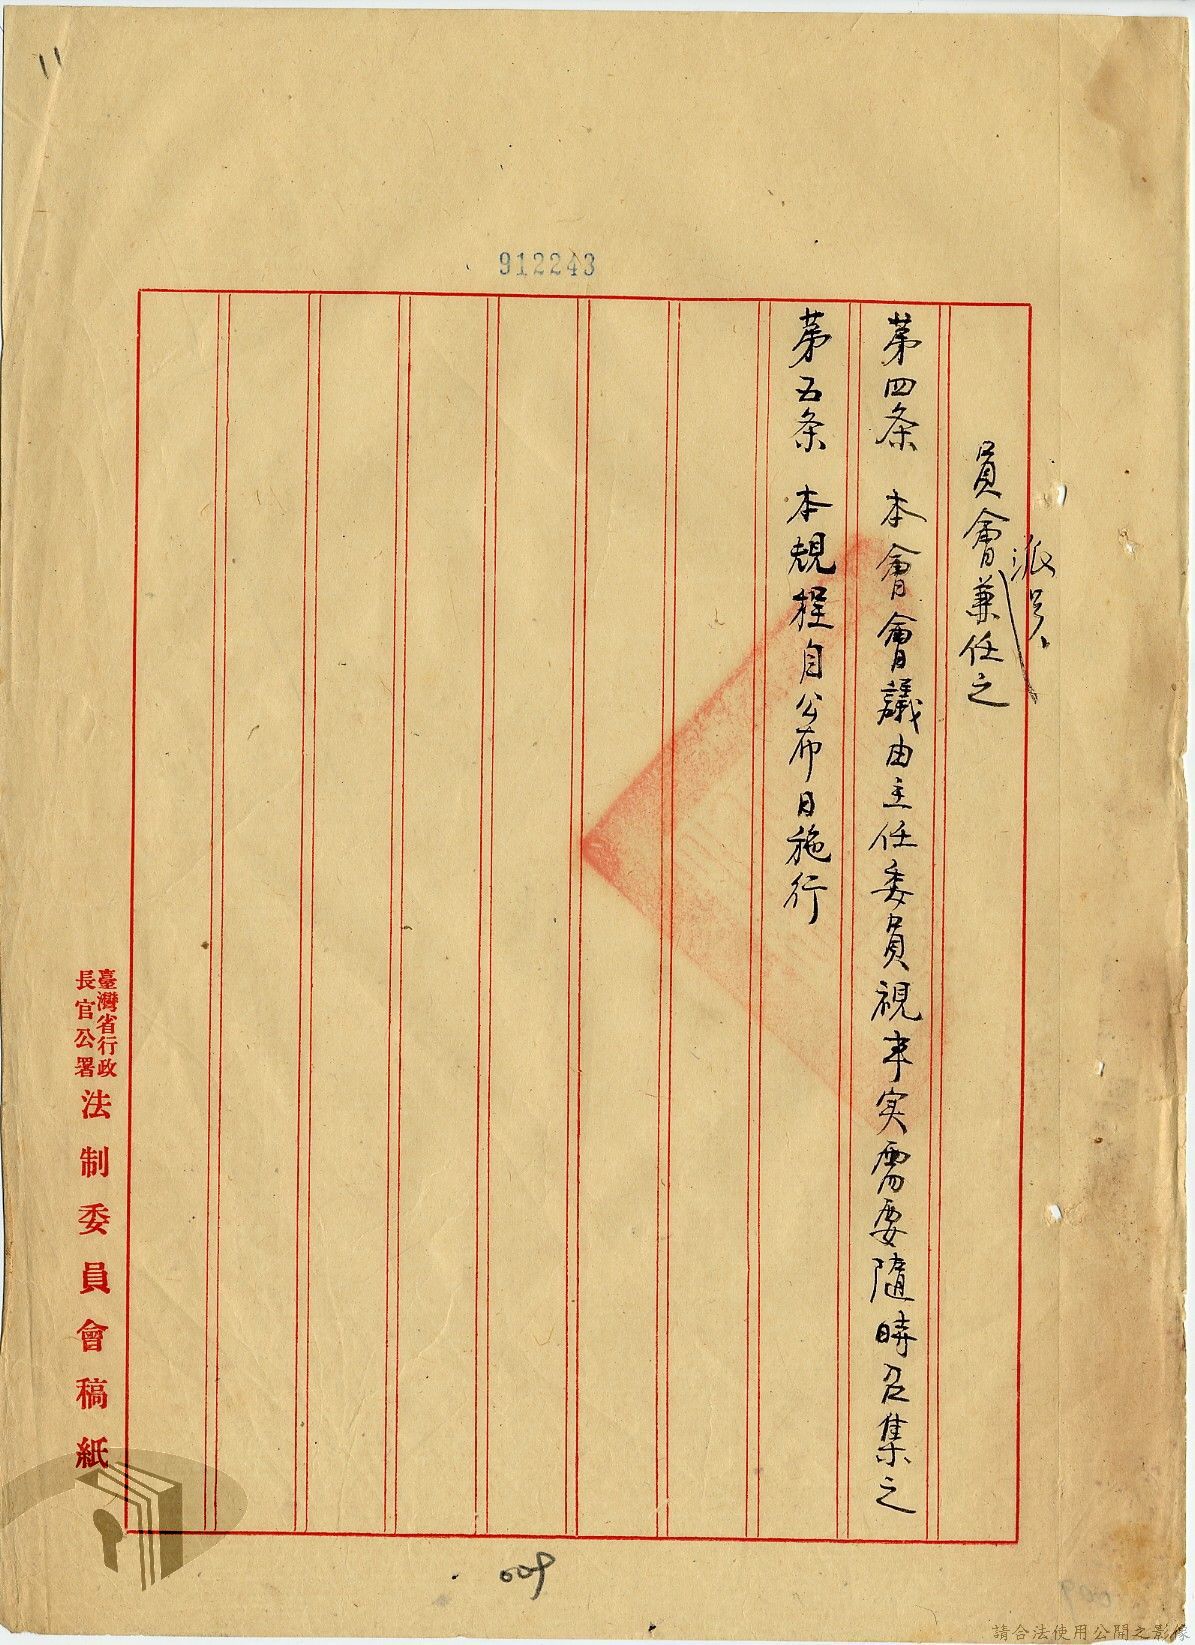 11
912243
員會兼任之
派員
第四条 本會會議由主任委員視事实需要隨時召集之
第五条 本規程自公布日施行
臺灣省行政
長官公署
法制委員會稿紙
009
請合法使用公開之影像